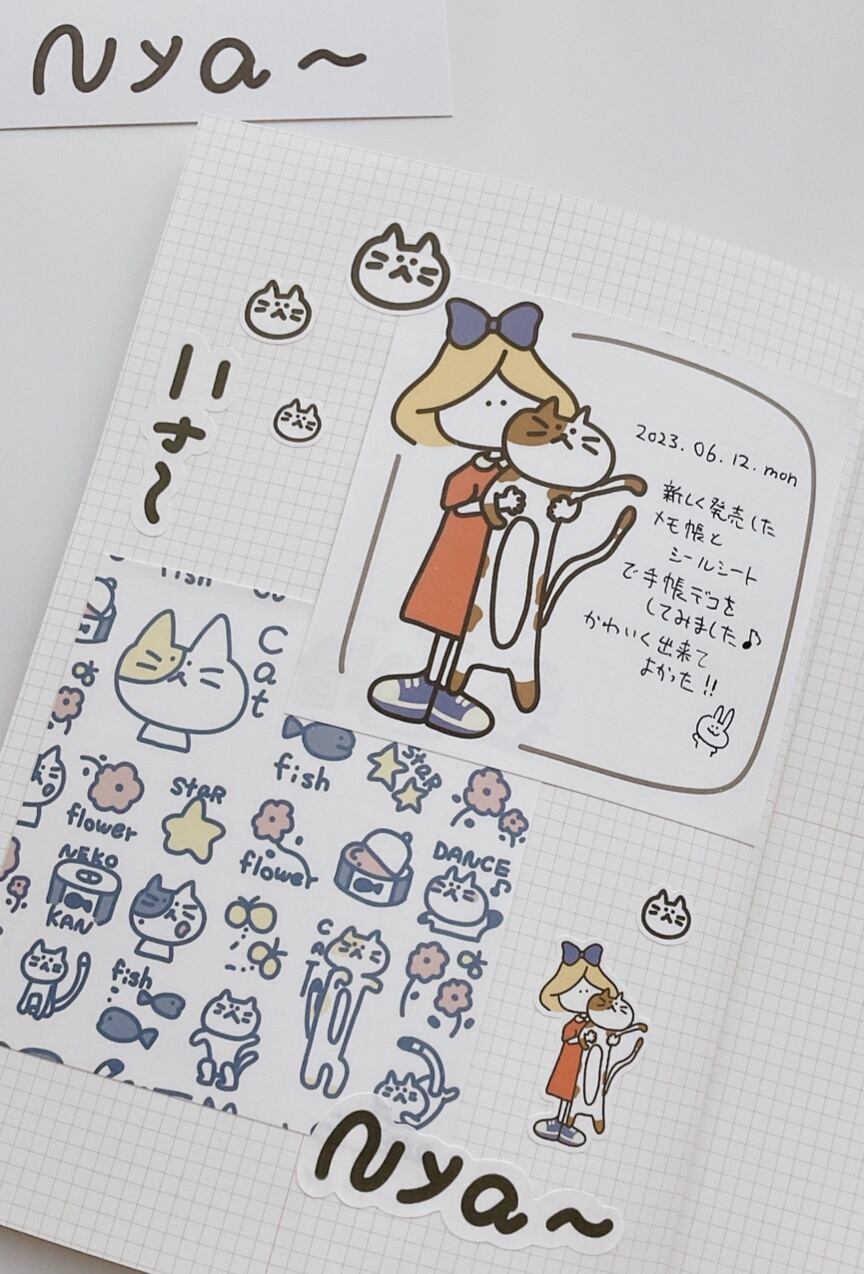 Nya~
にゃ〜
2023.06.12.mon
新しく発売した
メモ帳と
シールシート
で手帳デコを
してみました♪
かわいく出来て
よかった!!
fish
Cat
fish
STAR
STAR
flower
flower
DANCE♪
NEKO
KAN
CAT
fish
Nya~